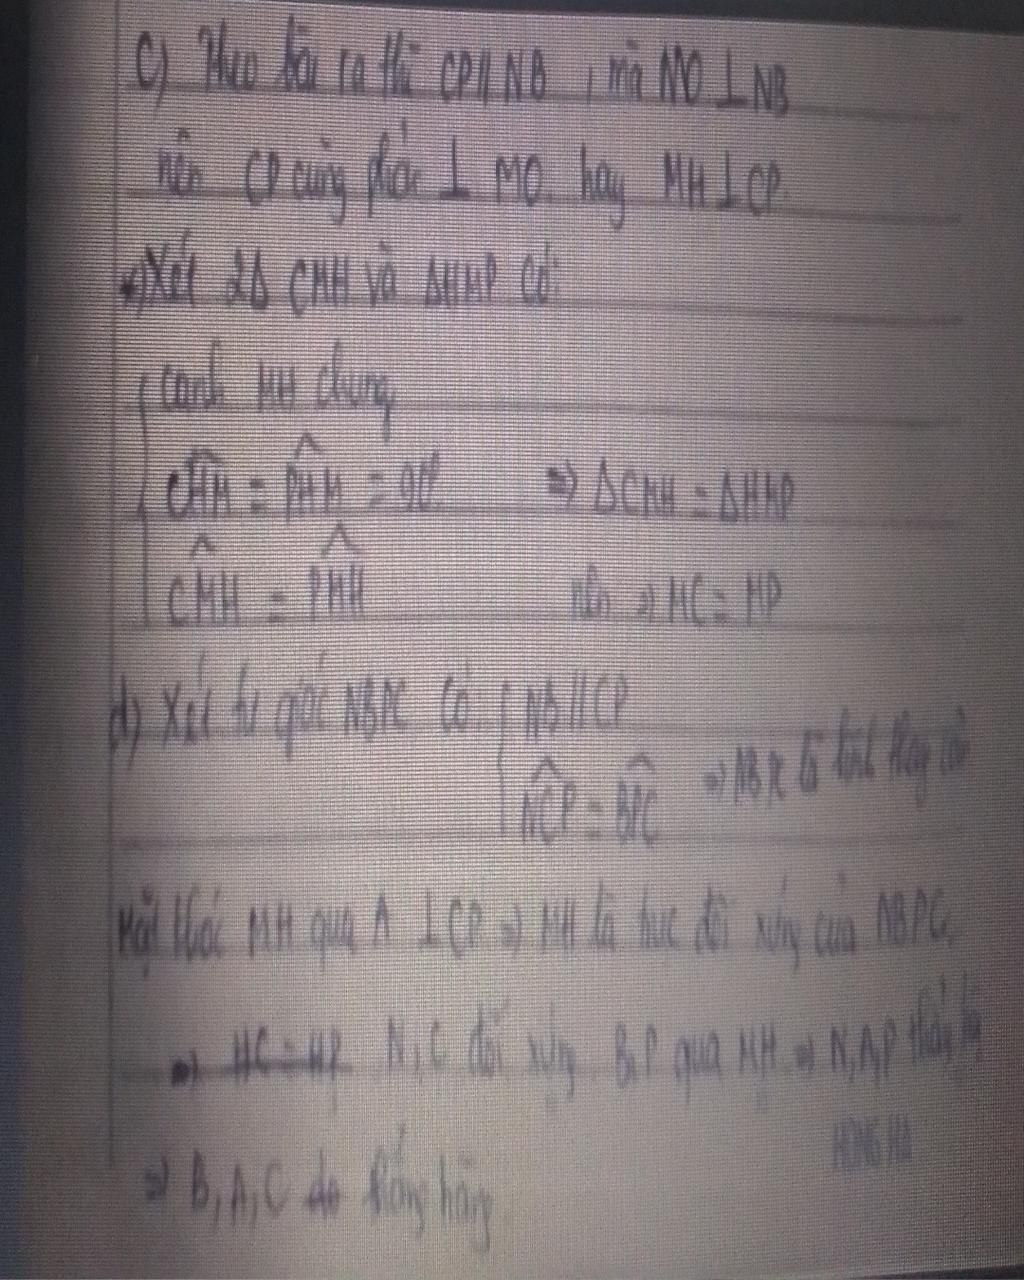 c) Theo bài ra thì CP // NB , mà MO ⊥ NB
nên CP cũng phải ⊥ MO. hay MH ⊥ CP.
Xét 2Δ CMH và ΔHMP có:
cạnh MH chung
CHM = PHM = 90° => ΔCMH = ΔHMP
CMH = PMH nên => HC = HP
d) Xét tứ giác NBPC có NB // CP
NCP = BPC => là hình thang cân
Mặt khác MH qua A ⊥ CP => MH là trục đối xứng của NBPC
=> HC = HP N, C đối xứng B, P qua MH => N, A, P thẳng
HONG HA
=> B, A, C thẳng hàng